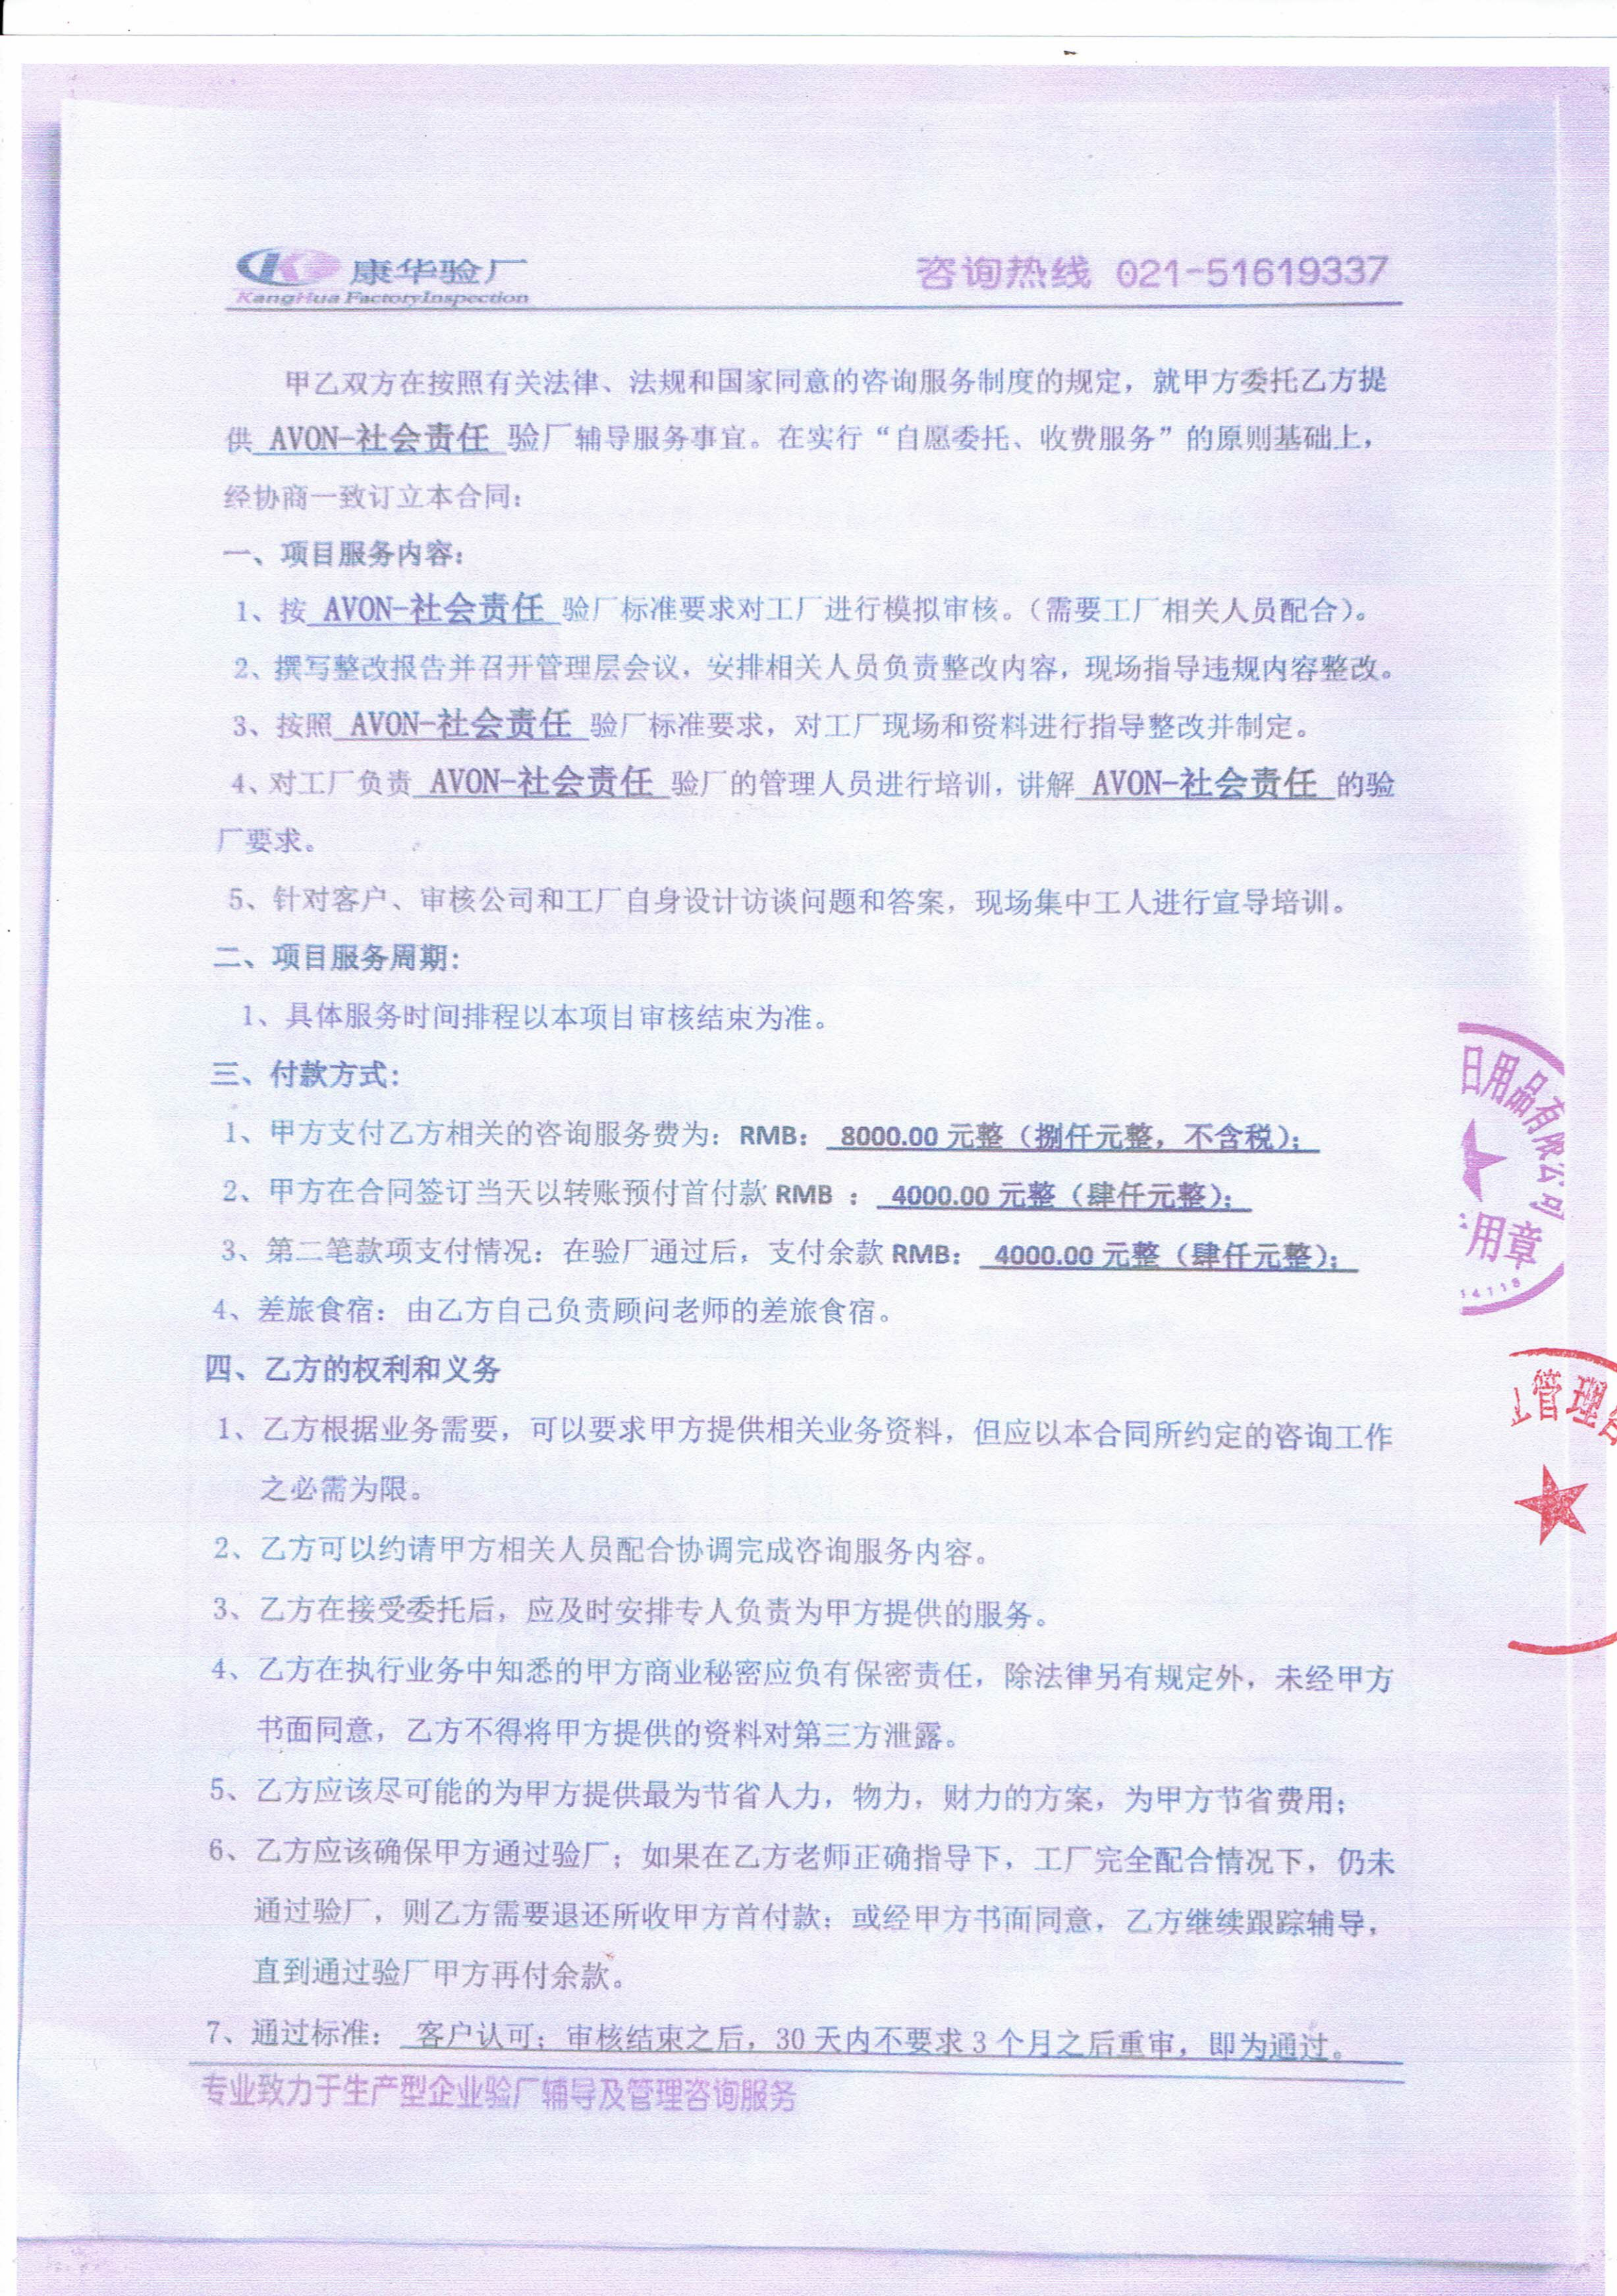 康华验厂
KangHua FactoryInspection
咨询热线 021-51619337
甲乙双方在按照有关法律、法规和国家同意的咨询服务制度的规定，就甲方委托乙方提
供 AVON-社会责任 验厂辅导服务事宜。在实行“自愿委托、收费服务”的原则基础上，
经协商一致订立本合同：
一、项目服务内容：
1、按 AVON-社会责任 验厂标准要求对工厂进行模拟审核。（需要工厂相关人员配合）。
2、撰写整改报告并召开管理层会议，安排相关人员负责整改内容，现场指导违规内容整改。
3、按照 AVON-社会责任 验厂标准要求，对工厂现场和资料进行指导整改并制定。
4、对工厂负责 AVON-社会责任 验厂的管理人员进行培训，讲解 AVON-社会责任 的验
厂要求。
5、针对客户、审核公司和工厂自身设计访谈问题和答案，现场集中工人进行宣导培训。
二、项目服务周期：
1、具体服务时间排程以本项目审核结束为准。
三、付款方式：
1、甲方支付乙方相关的咨询服务费为：RMB： 8000.00 元整（捌仟元整，不含税）；
2、甲方在合同签订当天以转账预付首付款 RMB ： 4000.00 元整（肆仟元整）；
3、第二笔款项支付情况：在验厂通过后，支付余款 RMB： 4000.00 元整（肆仟元整）；
4、差旅食宿：由乙方自己负责顾问老师的差旅食宿。
四、乙方的权利和义务
1、乙方根据业务需要，可以要求甲方提供相关业务资料，但应以本合同所约定的咨询工作
之必需为限。
2、乙方可以约请甲方相关人员配合协调完成咨询服务内容。
3、乙方在接受委托后，应及时安排专人负责为甲方提供的服务。
4、乙方在执行业务中知悉的甲方商业秘密应负有保密责任，除法律另有规定外，未经甲方
书面同意，乙方不得将甲方提供的资料对第三方泄露。
5、乙方应该尽可能的为甲方提供最为节省人力，物力，财力的方案，为甲方节省费用；
6、乙方应该确保甲方通过验厂；如果在乙方老师正确指导下，工厂完全配合情况下，仍未
通过验厂，则乙方需要退还所收甲方首付款；或经甲方书面同意，乙方继续跟踪辅导，
直到通过验厂甲方再付余款。
7、通过标准： 客户认可；审核结束之后，30 天内不要求 3 个月之后重审，即为通过。
专业致力于生产型企业验厂辅导及管理咨询服务
日用品有限公司
用章
14118
管理